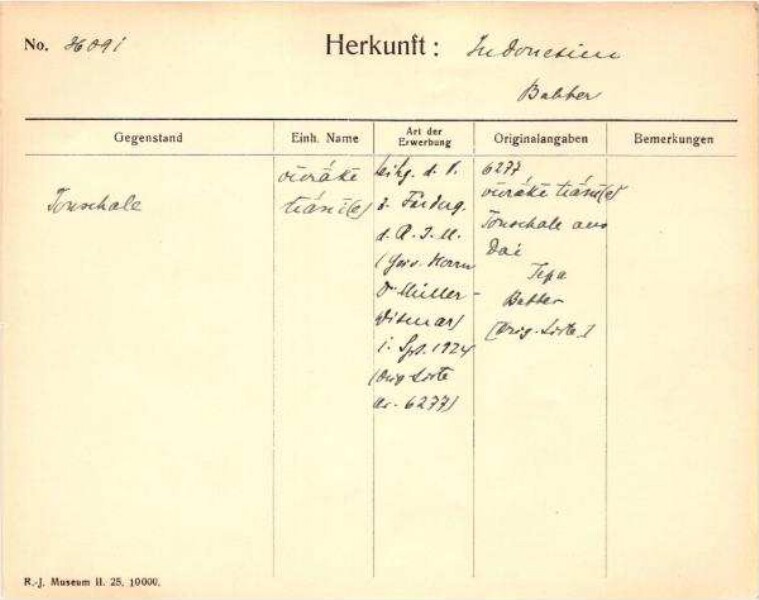 No. 36091
Herkunft: Indonesien
Babber
Gegenstand
Einh. Name
Art der Erwerbung
Originalangaben
Bemerkungen
Tonschale
tiáni(e)
Leihg. d. V.
z. Förderg.
d. R. J. M.
(Herrn
Dr Müller-
Wismar)
i. Spt. 1924
(Orig-Liste
nr. 6277)
6277
tiáni(e)
Tonschale aus
Dai
Tepa
Babber
(Orig.-Liste.)
R.-J. Museum II. 25. 10000.